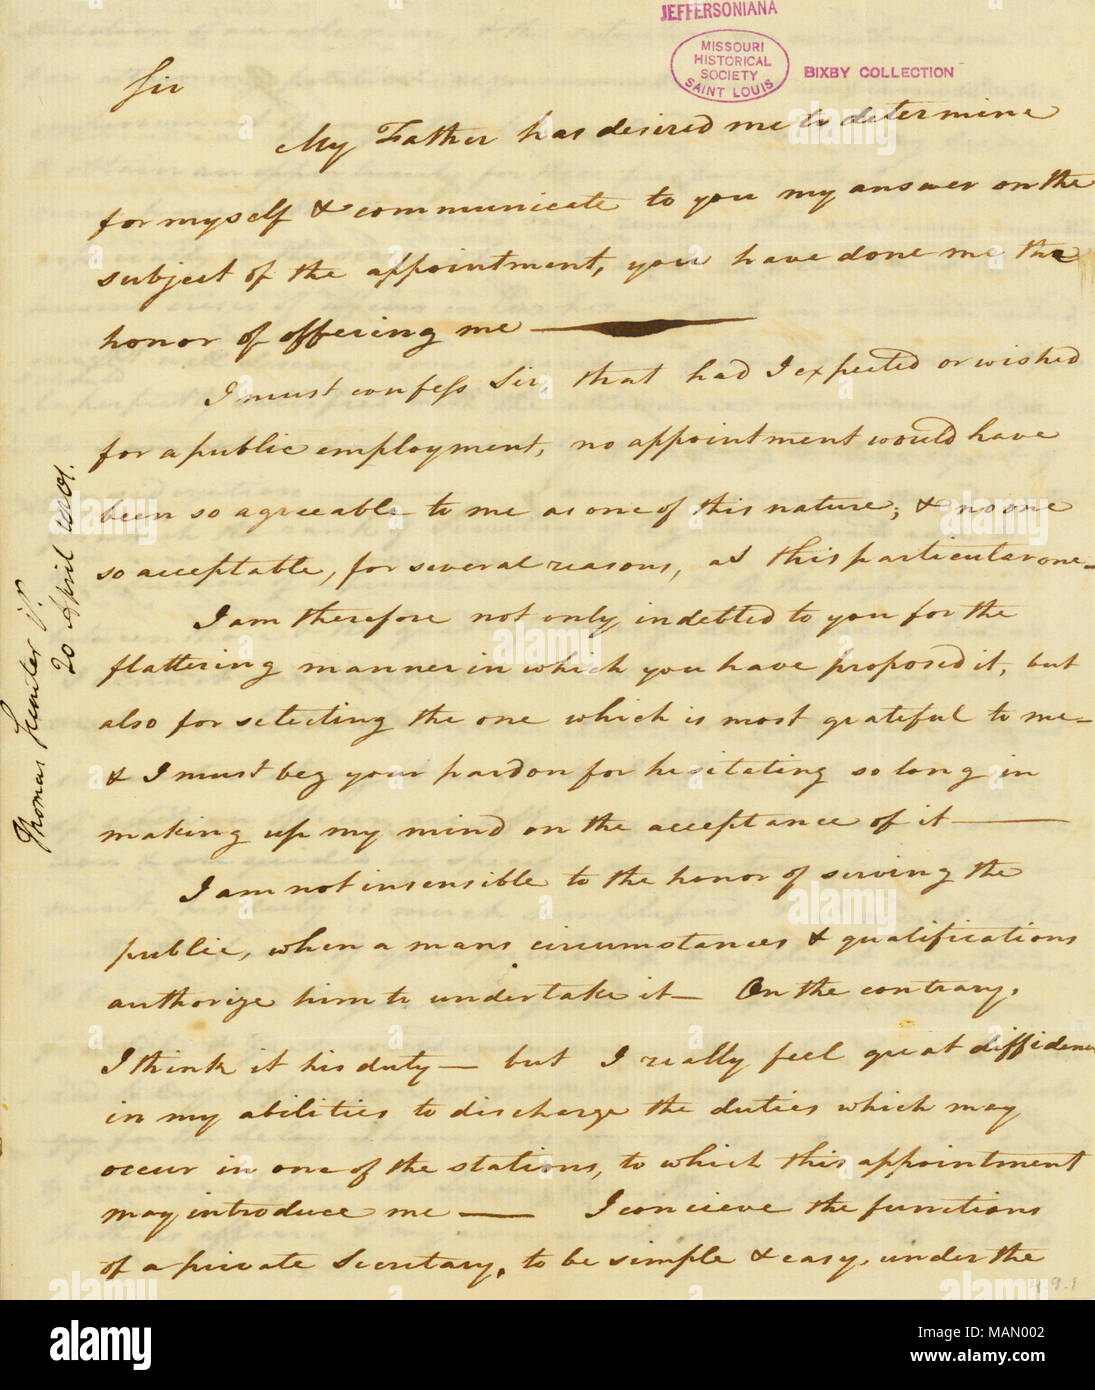 JEFFERSONIANA
MISSOURI
HISTORICAL
SOCIETY
SAINT LOUIS
BIXBY COLLECTION
Sir
My Father has desired me to determine
for myself & communicate to you my answer on the
subject of the appointment, you have done me the
honor of offering me —
I must confess Sir, that had I expected or wished
for a public employment, no appointment would have
been so agreeable to me as one of this nature; & no one
so acceptable, for several reasons, as this particular one—
I am therefore not only indebted to you for the
flattering manner in which you have proposed it, but
also for selecting the one which is most grateful to me—
& I must beg your pardon for hesitating so long in
making up my mind on the acceptance of it —
I am not insensible to the honor of serving the
public, when a mans circumstances & qualifications
authorize him to undertake it — On the contrary,
I think it his duty — but I really feel great diffidence
in my abilities to discharge the duties which may
occur in one of the stations, to which this appointment
may introduce me — I concieve the functions
of a private Secretary, to be simple & easy, under the
Thomas Sumter Jr.
20 April 1801.
4.9.1
a alamy
alamy
Image ID: MAN002
www.alamy.com